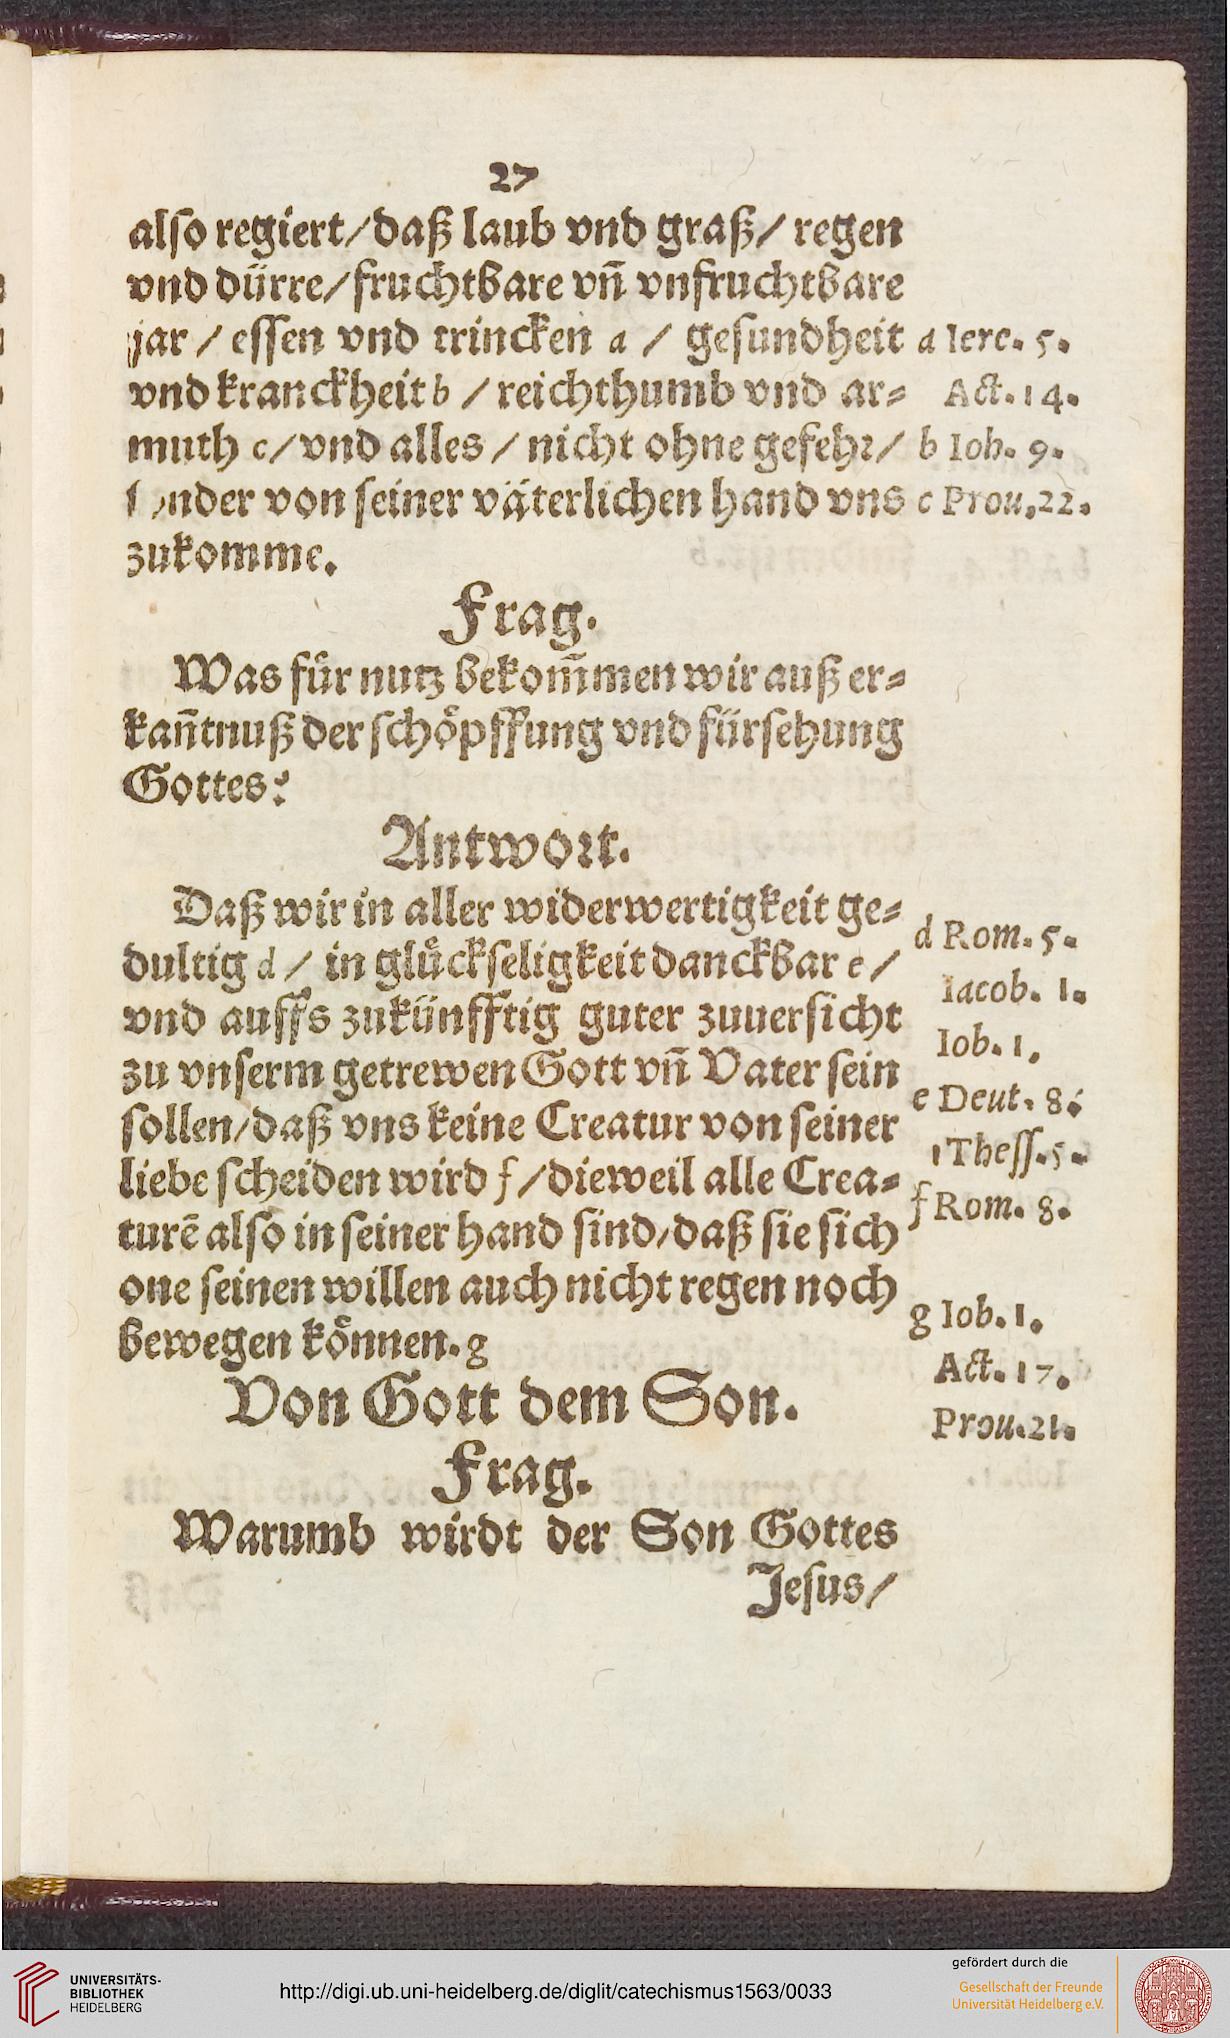 27
also regiert/daß laub vnd graß/ regen
vnd dürre/fruchtbare vn̄ vnfruchtbare
jar / essen vnd trincken a / gesundheit
vnd kranckheit b / reichthumb vnd ar⸗
muth c/vnd alles / nicht ohne gefehr/
sonder von seiner väterlichen hand vns
zukomme.
a Iere. 5.
Act. 14.
b Ioh. 9.
c Prou. 22.
Frag.
Was für nutz bekom̄men wir auß er⸗
kan̄tnuß der schöpffung vnd fürsehung
Gottes?
Antwort.
Daß wir in aller widerwertigkeit ge⸗
dultig d / in glückseligkeit danckbar e /
vnd auffs zukünfftig guter zuuersicht
zu vnserm getrewen Gott vn̄ Vater sein
sollen/daß vns keine Creatur von seiner
liebe scheiden wird f /dieweil alle Crea⸗
turē also in seiner hand sind/daß sie sich
one seinen willen auch nicht regen noch
bewegen können. g
d Rom. 5.
Iacob. 1.
Iob. 1.
e Deut. 8.
1 Thess. 5.
f Rom. 8.
g Iob. 1.
Act. 17.
Prou. 21.
Von Gott dem Son.
Frag.
Warumb wirdt der Son Gottes
Jesus/
UNIVERSITÄTS-
BIBLIOTHEK
HEIDELBERG
http://digi.ub.uni-heidelberg.de/diglit/catechismus1563/0033
gefördert durch die
Gesellschaft der Freunde
Universität Heidelberg e.V.